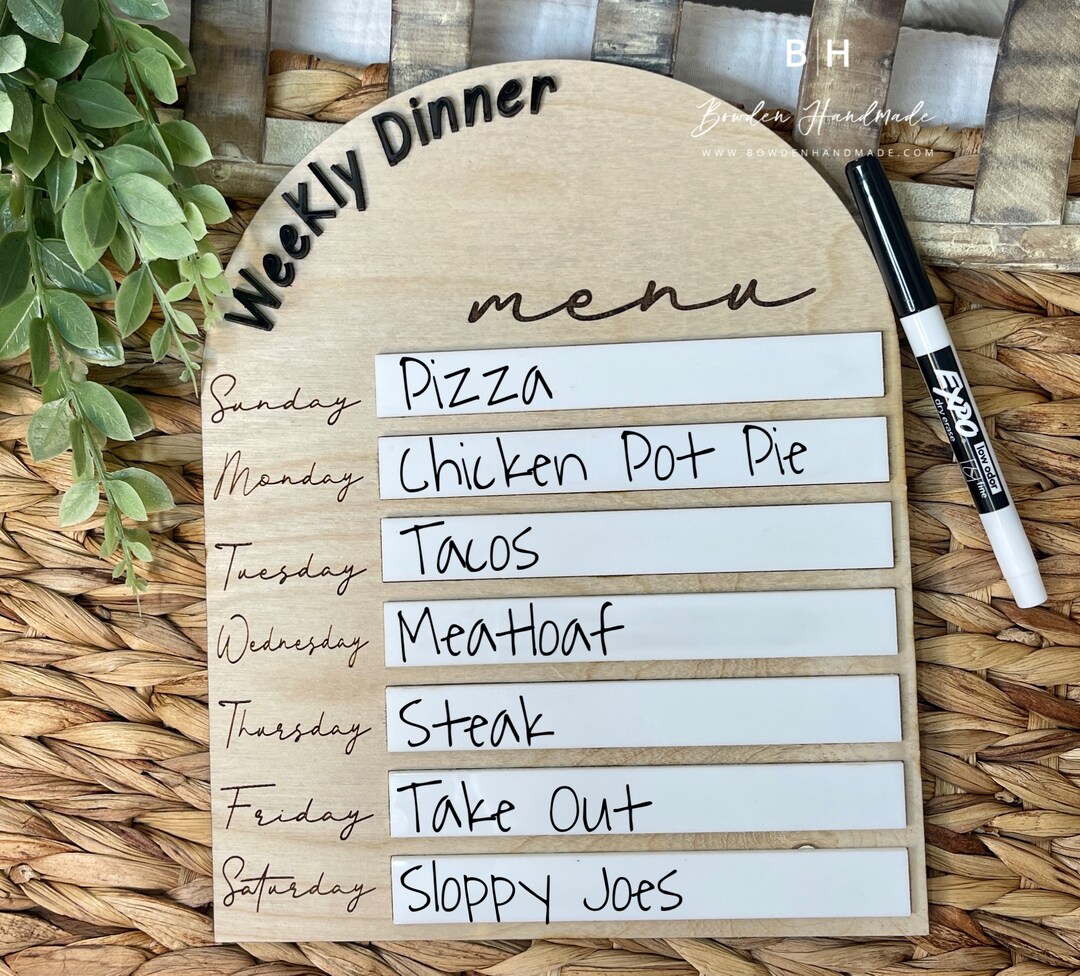 B|H
Bowden Handmade
WWW.BOWDENHANDMADE.COM
Weekly Dinner
menu
Sunday Pizza
Monday Chicken Pot Pie
Tuesday Tacos
Wednesday Meatloaf
Thursday Steak
Friday Take Out
Saturday Sloppy Joes
EXPO
dry erase
low odor
fine